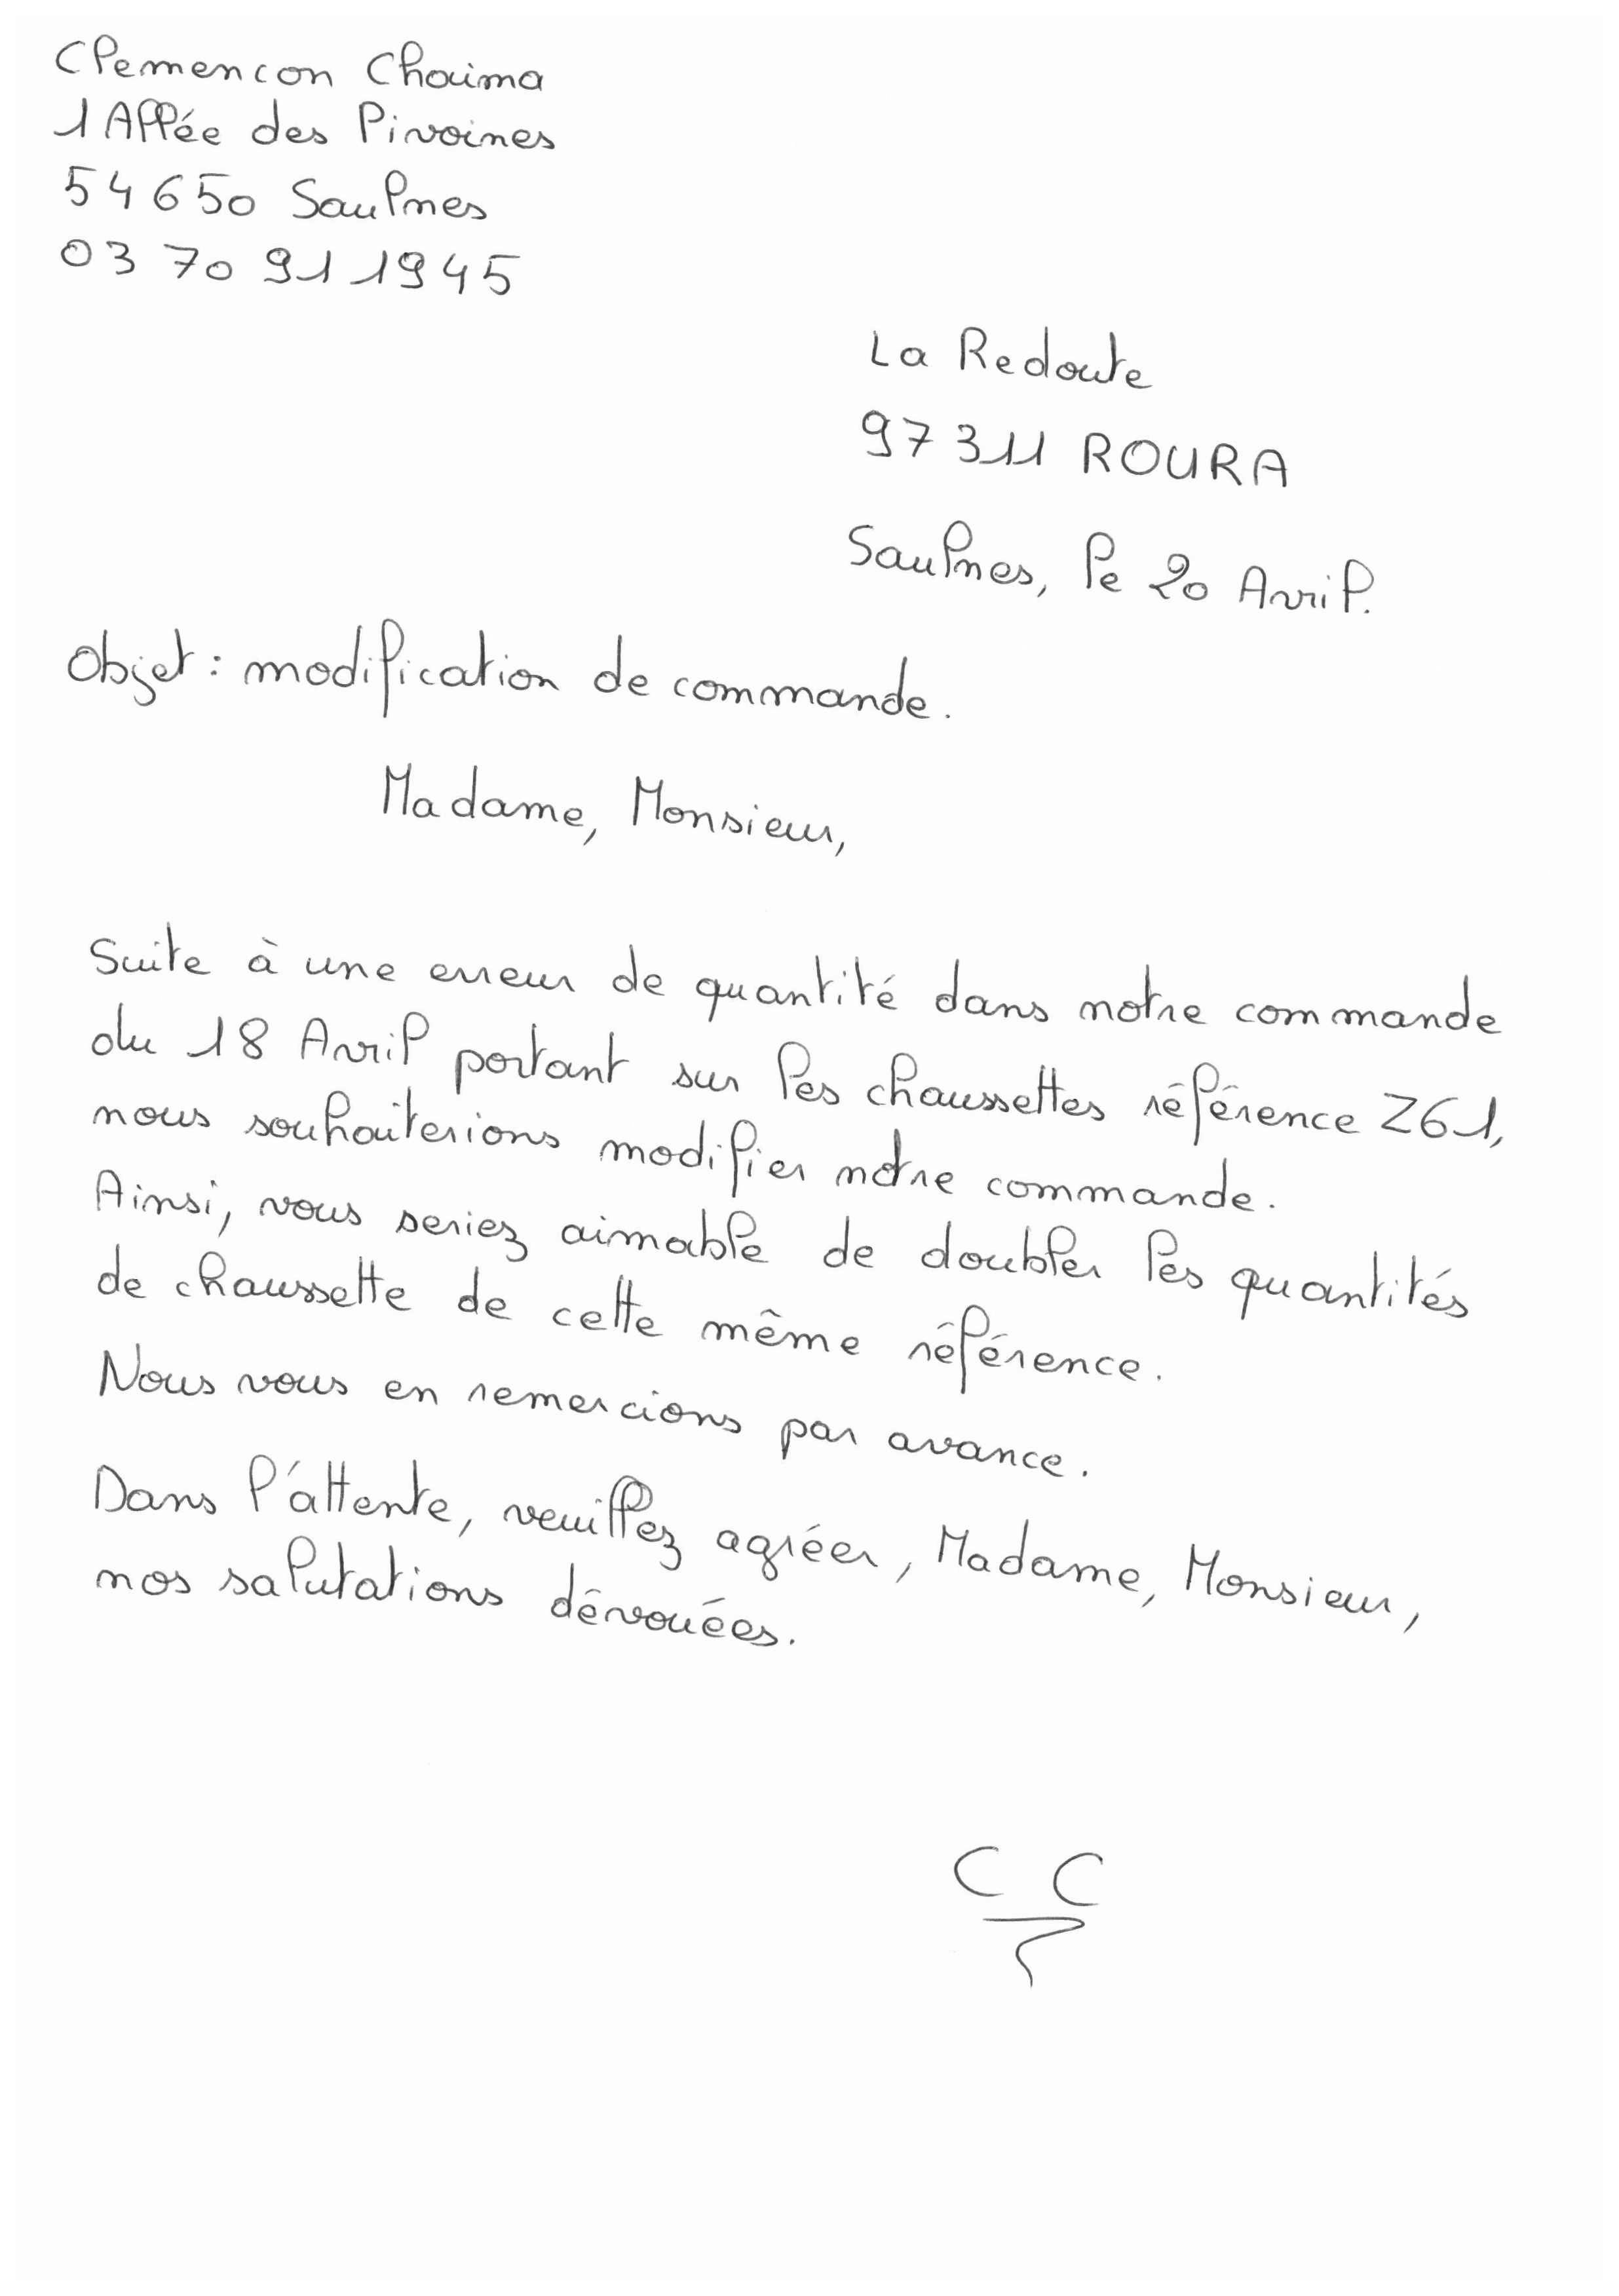 Clemencon Chaima
1 Allée des Pivoines
54650 Saulnes
03 70 91 19 45
La Redoute
97311 ROURA
Saulnes, le 20 Avril.
Objet : modification de commande.
Madame, Monsieur,
Suite à une erreur de quantité dans notre commande
du 18 Avril portant sur les chaussettes référence Z61,
nous souhaiterions modifier notre commande.
Ainsi, vous seriez aimable de doubler les quantités
de chaussette de cette même référence.
Nous vous en remercions par avance.
Dans l'attente, veuillez agréer, Madame, Monsieur,
nos salutations dévouées.
CC